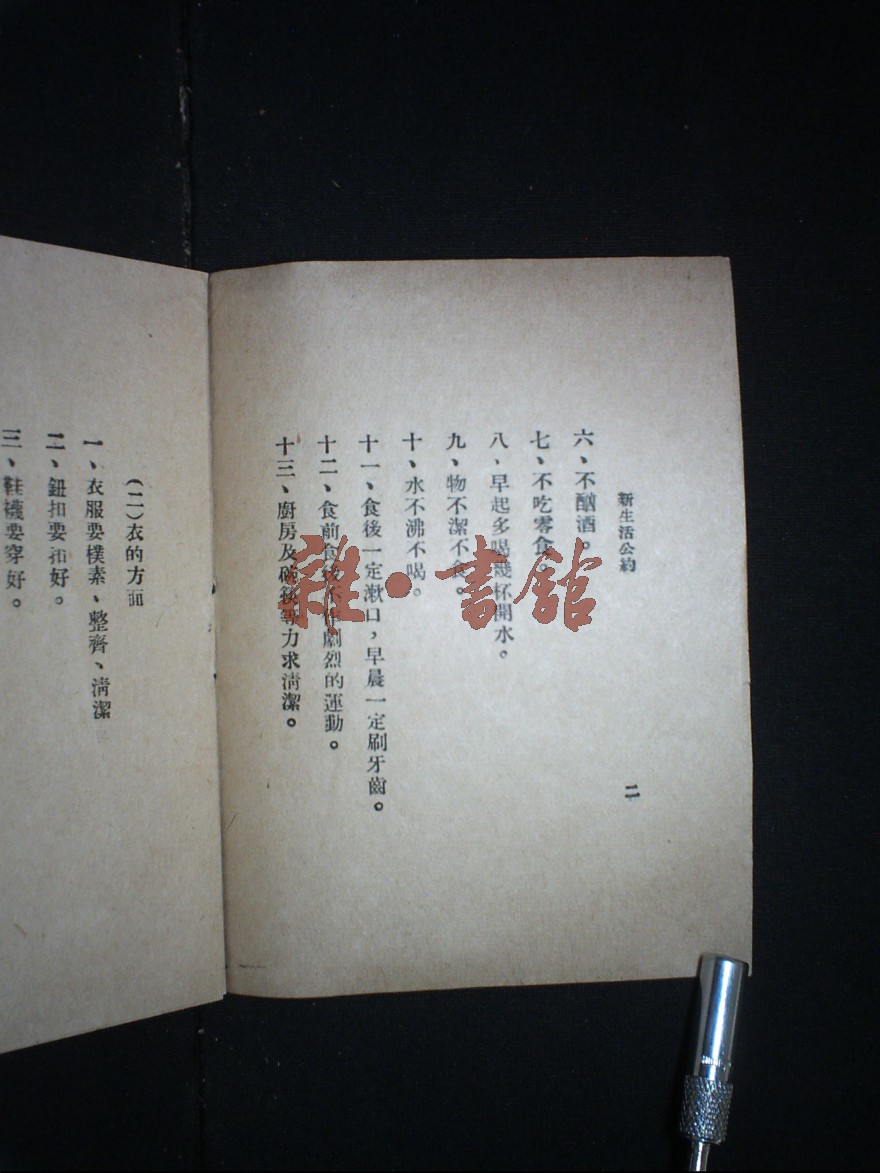 新生活公約
二
六、不酗酒。
七、不吃零食。
八、早起多喝幾杯開水。
九、物不潔不食。
十、水不沸不喝。
十一、食後一定漱口，早晨一定刷牙齒。
十二、食前食後不作劇烈的運動。
十三、廚房及碗筷等力求清潔。
(二)衣的方面
一、衣服要樸素、整齊、清潔
二、鈕扣要扣好。
三、鞋襪要穿好。
雜·書館